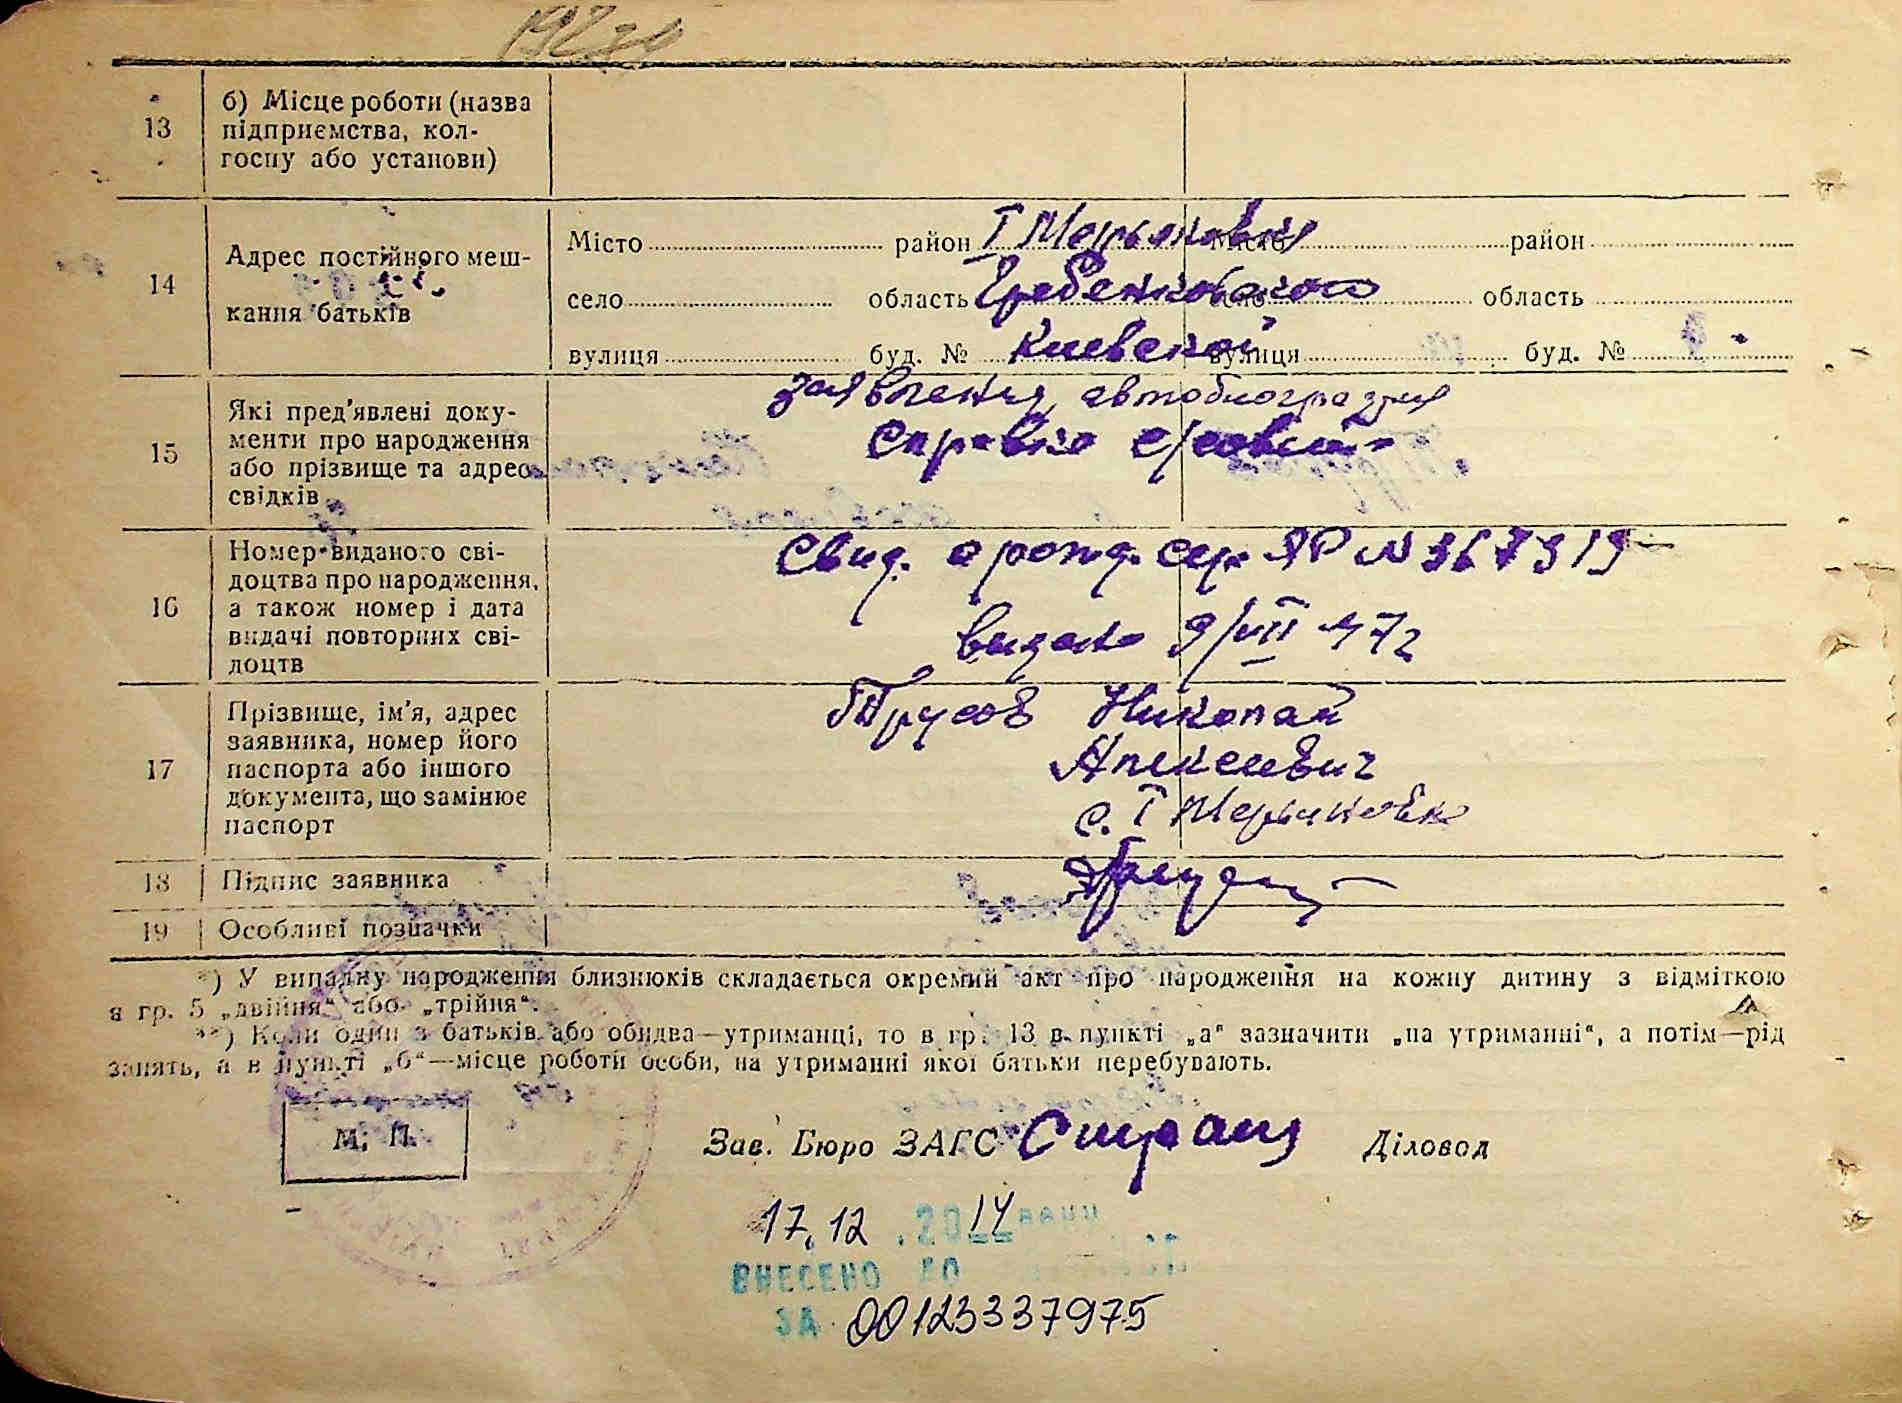 13
б) Місце роботи (назва
підприємства, кол-
госпу або установи)
14
Адрес постійного меш-
кання батьків
Місто район І Місто район
село область Гребенковского область
вулиця буд. № Киевской вулиця буд. №
15
Які пред'явлені доку-
менти про народження
або прізвище та адреса
свідків
заявления, автобиография
Справка с/совета
16
Номер виданого сві-
доцтва про народження,
а також номер і дата
видачі повторних сві-
доцтв
Свид. о рожд. сер. ЯР № 367919
видано 9/VII 47 г
17
Прізвище, ім'я, адрес
заявника, номер його
паспорта або іншого
документа, що замінює
паспорт
Трусов Николай
Алексеевич
с. І
18 Підпис заявника
19 Особливі позначки
*) У випадку народження близнюків складається окремий акт про народження на кожну дитину з відміткою
в гр. 5 „двійня“ або „трійня“.
**) Коли один з батьків або обидва—утриманці, то в гр. 13 в пункті „а“ зазначити „на утриманні“, а потім—рід
занять, а в пункті „б“—місце роботи особи, на утриманні якої батьки перебувають.
М. П.
Зав. Бюро ЗАГС Діловод
17.12.2014
ВНЕСЕНО ДО
ЗА 00123337975